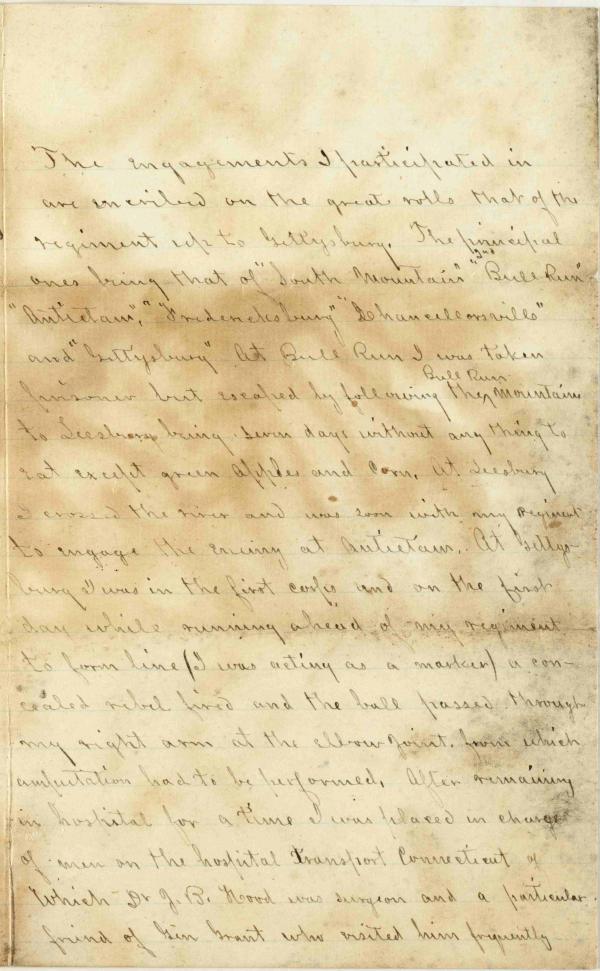 The engagements I participated in
are enscribed on the great rolls that of the
regiment up to Gettysburg. The principal
ones being that of "South Mountain" "2nd Bull Run"
"Antietam", "Fredericksburg" "Chancellorsville"
and "Gettysburg" At Bull Run I was taken
prisoner but escaped by following the Bull Run Mountains
to Leesburg being seven days without any thing to
eat except green apples and corn. At Leesburg
I crossed the river and was soon with my regiment
to engage the enemy at Antietam. At Gettys-
burg I was in the first corps and on the first
day while running ahead of my regiment
to form line (I was acting as a marker) a con-
cealed rebel fired and the ball passed through
my right arm at the elbow joint. from which
amputation had to be performed. After remaining
in hospital for a time I was placed in charge
of men on the hospital transport Connecticut of
Which Dr J. B. Hood was surgeon and a particular
friend of Gen Grant who visited him frequently